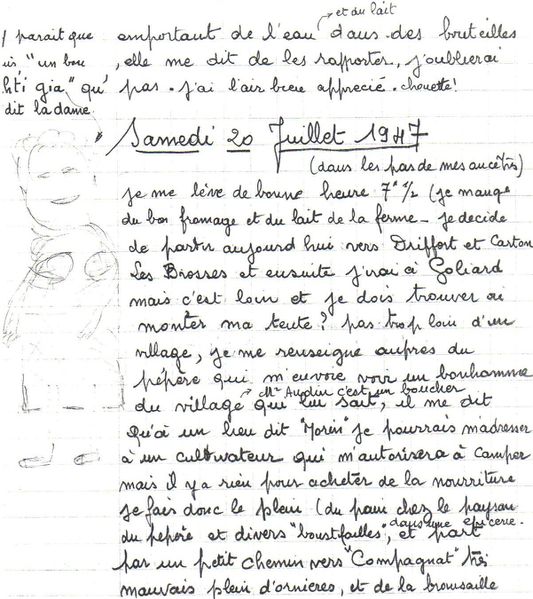 et du lait
/ parait que
emportant de l'eau dans des bouteilles
"un bon
, elle me dit de les rapporter, j'oublierai
gia" qu'
pas. j'ai l'air bien apprecié. chouette!
dit la dame.
Samedi 20 Juillet 1947
(dans les pas de mes ancêtres)
je me lève de bonne heure 7h 1/2 (je mange
du bon fromage et du lait de la ferme - je decide
de partir aujourd hui vers Driffort et Carton
Les Brosses et ensuite j'irai à Goliard
mais c'est loin et je dois trouver où
monter ma tente? pas trop loin d'un
village, je me renseigne aupres du
pépère qui m'envoie voir un bonhomme
Mr Audin c'est un boucher
du village qui lui sait, il me dit
Qu'à un lieu dit "Morin" je pourrais m'adresser
à un cultivateur qui m'autorisera à camper
mais il y a rien pour acheter de la nourriture
je fais donc le plein (du pain chez le paysan
dans une epicerie.
du pepère et divers "boustifailles", et part
par un petit chemin vers "Compagnat" très
mauvais plein d'ornieres, et de la broussaille